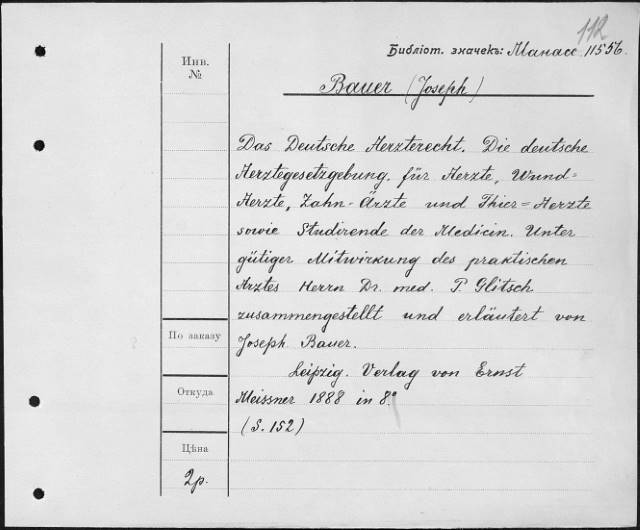 112
Библіот. значекъ: Манасс. 11556.
Инв.
№
Bauer (Joseph)
Das Deutsche Aerzterecht. Die deutsche
Aerztegesetzgebung für Aerzte, Wund=
Aerzte, Zahn-Ärzte und Thier=Aerzte
sowie Studirende der Medicin. Unter
gütiger Mitwirkung des praktischen
Arztes Herrn Dr. med. P. Glitsch
zusammengestellt und erläutert von
Joseph Bauer.
Leipzig. Verlag von Ernst
Meissner 1888 in 8.º
(S. 152)
По заказу
Откуда
Цѣна
2р.